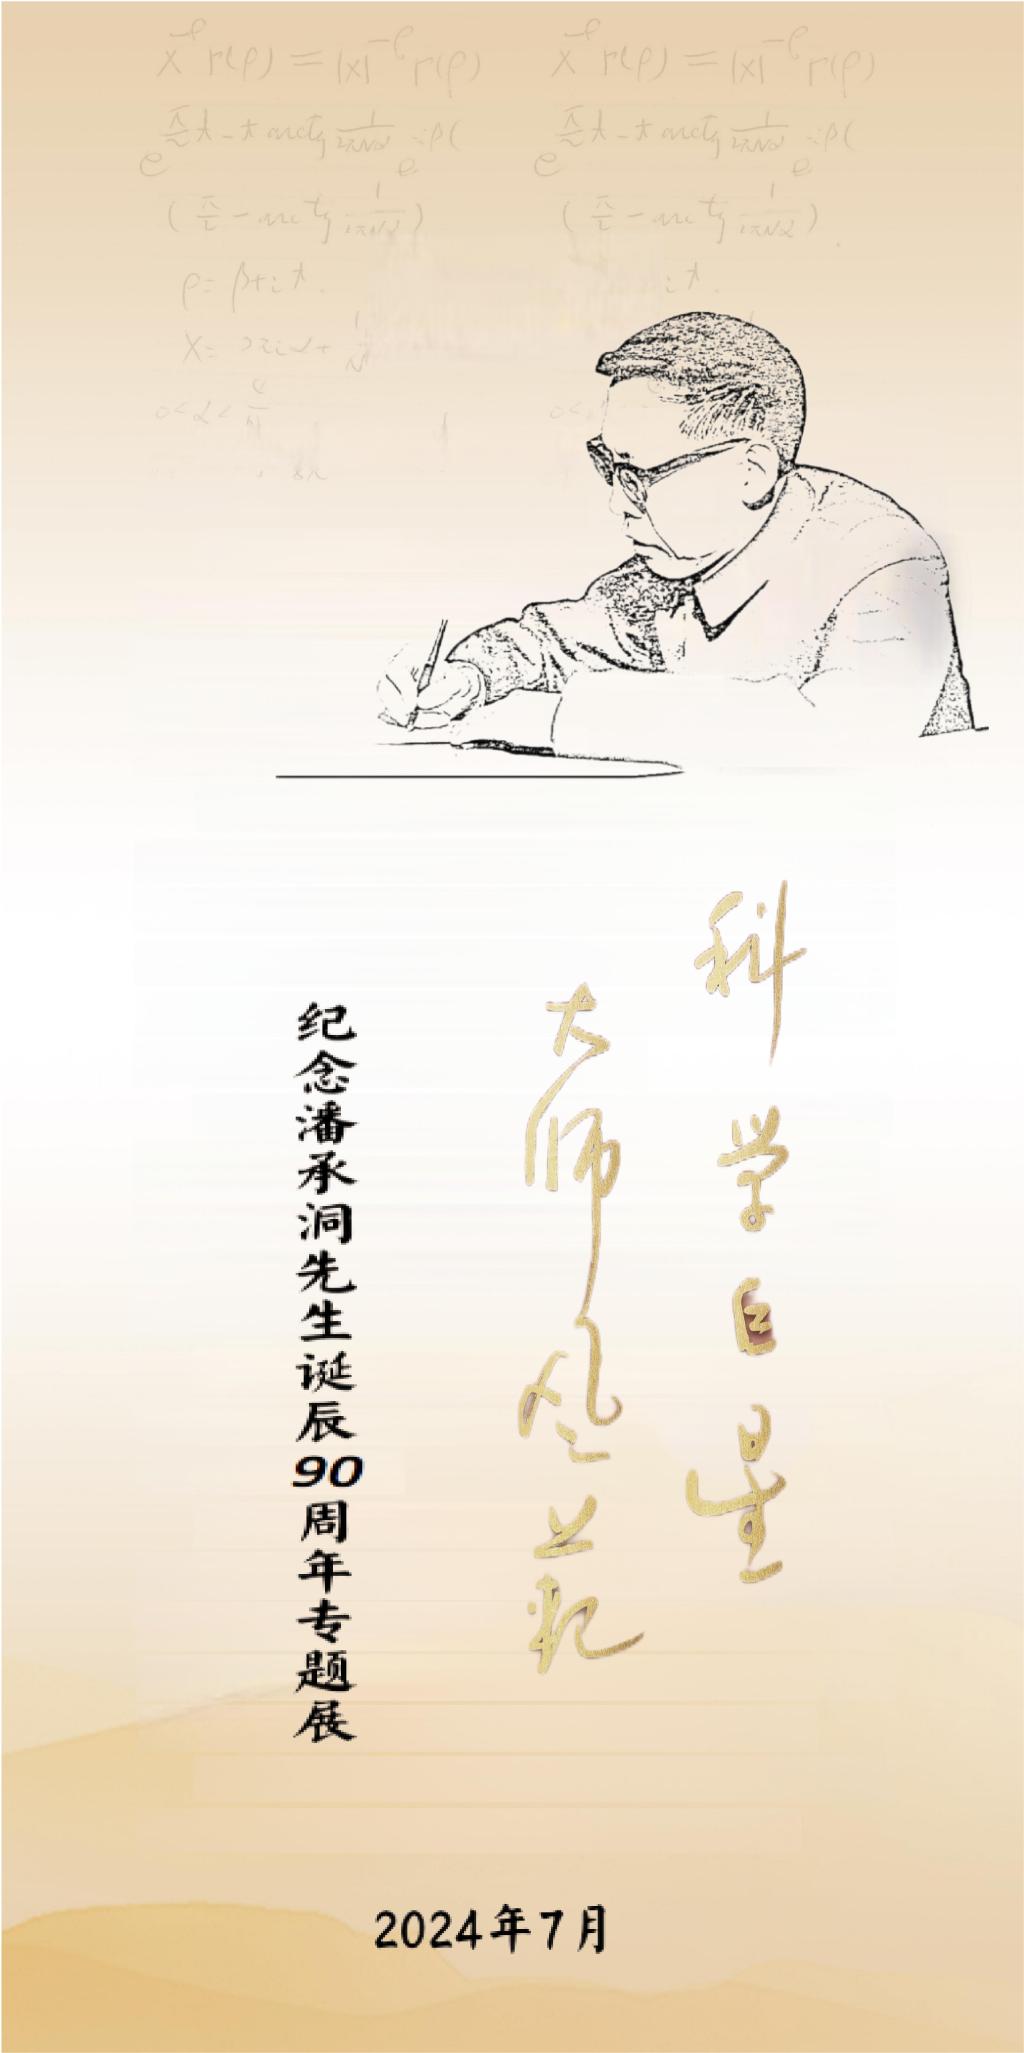 x^-ρ Γ(ρ) = |x|^-ρ Γ(ρ) x^-ρ Γ(ρ) = |x|^-ρ Γ(ρ)
ρ = β+it.
科学巨星
大师风范
纪念潘承洞先生诞辰90周年专题展
2024年7月